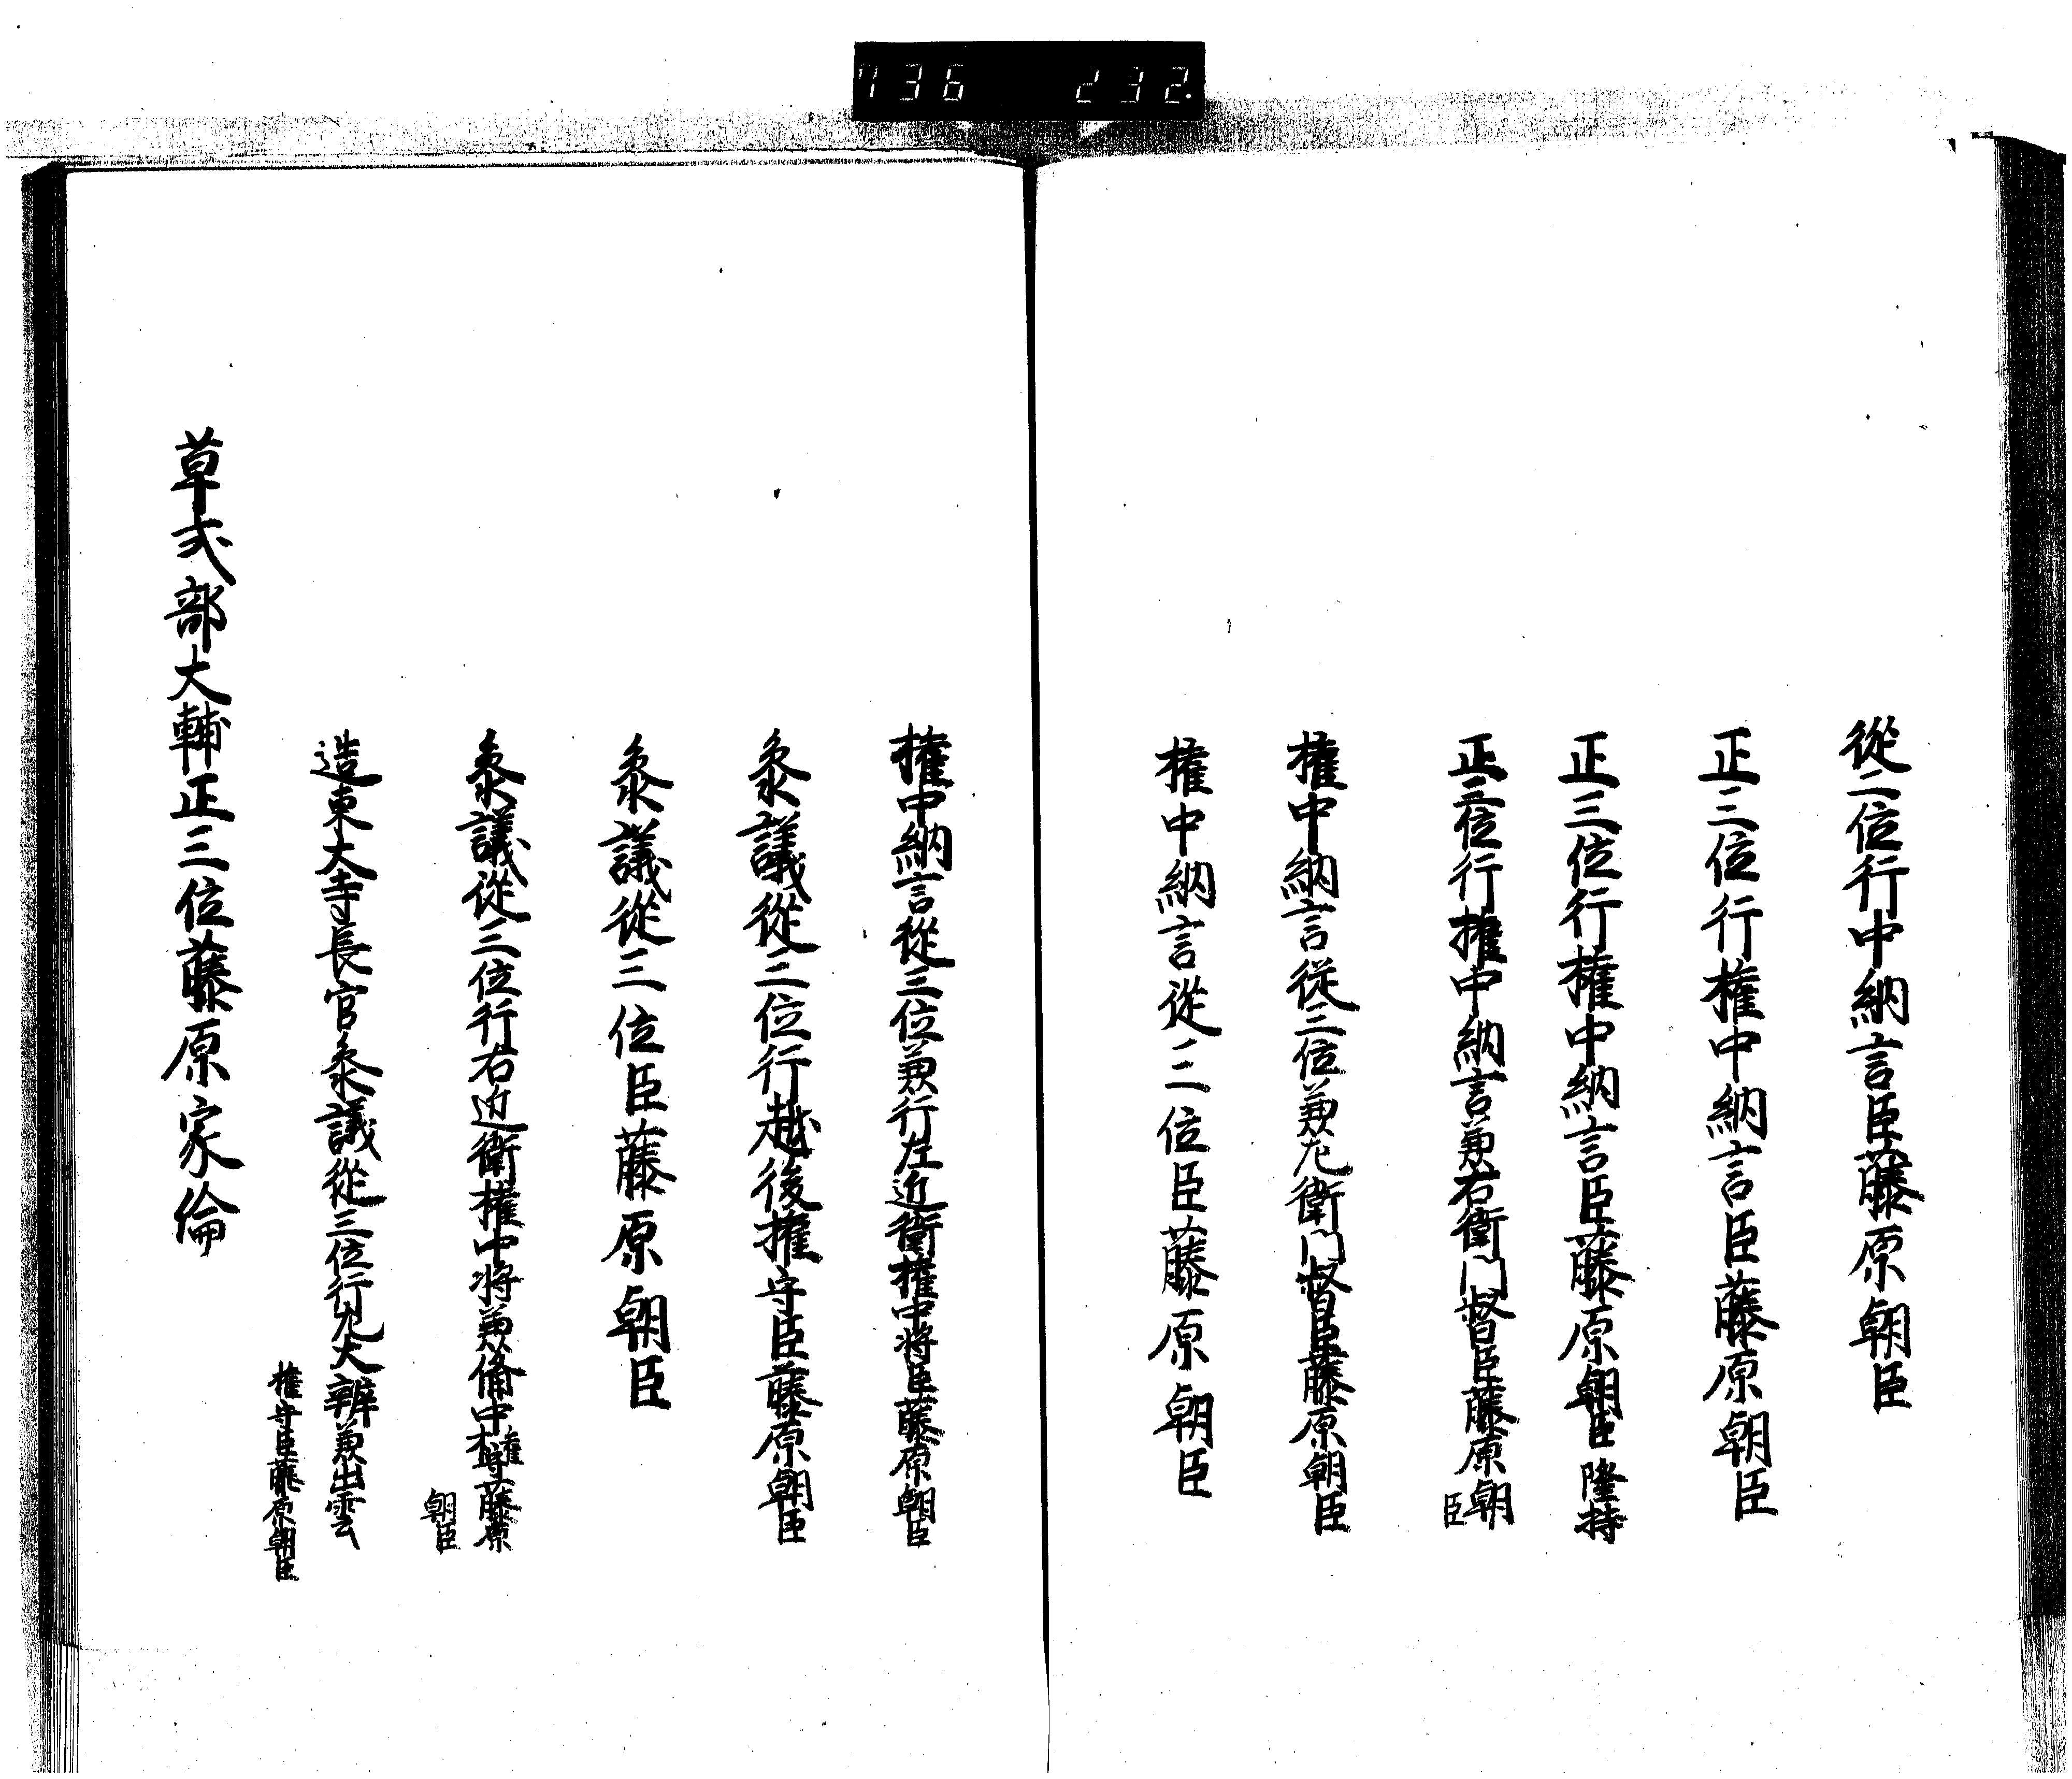 736 232
從二位行中納言臣藤原朝臣
正二位行權中納言臣藤原朝臣
正三位行權中納言臣藤原朝臣隆持
正三位行權中納言兼右衛門督臣藤原朝
臣
權中納言從三位兼左衛門督臣藤原朝臣
權中納言從三位臣藤原朝臣
權中納言從三位兼行左近衛權中将臣藤原朝臣
叅議從三位行越後權守臣藤原朝臣
叅議從三位臣藤原朝臣
叅議從三位行右近衛權中将兼備中權守藤原
朝臣
造東大寺長官叅議從三位行左大辨兼出雲
權守臣藤原朝臣
草式部大輔正三位藤原家倫